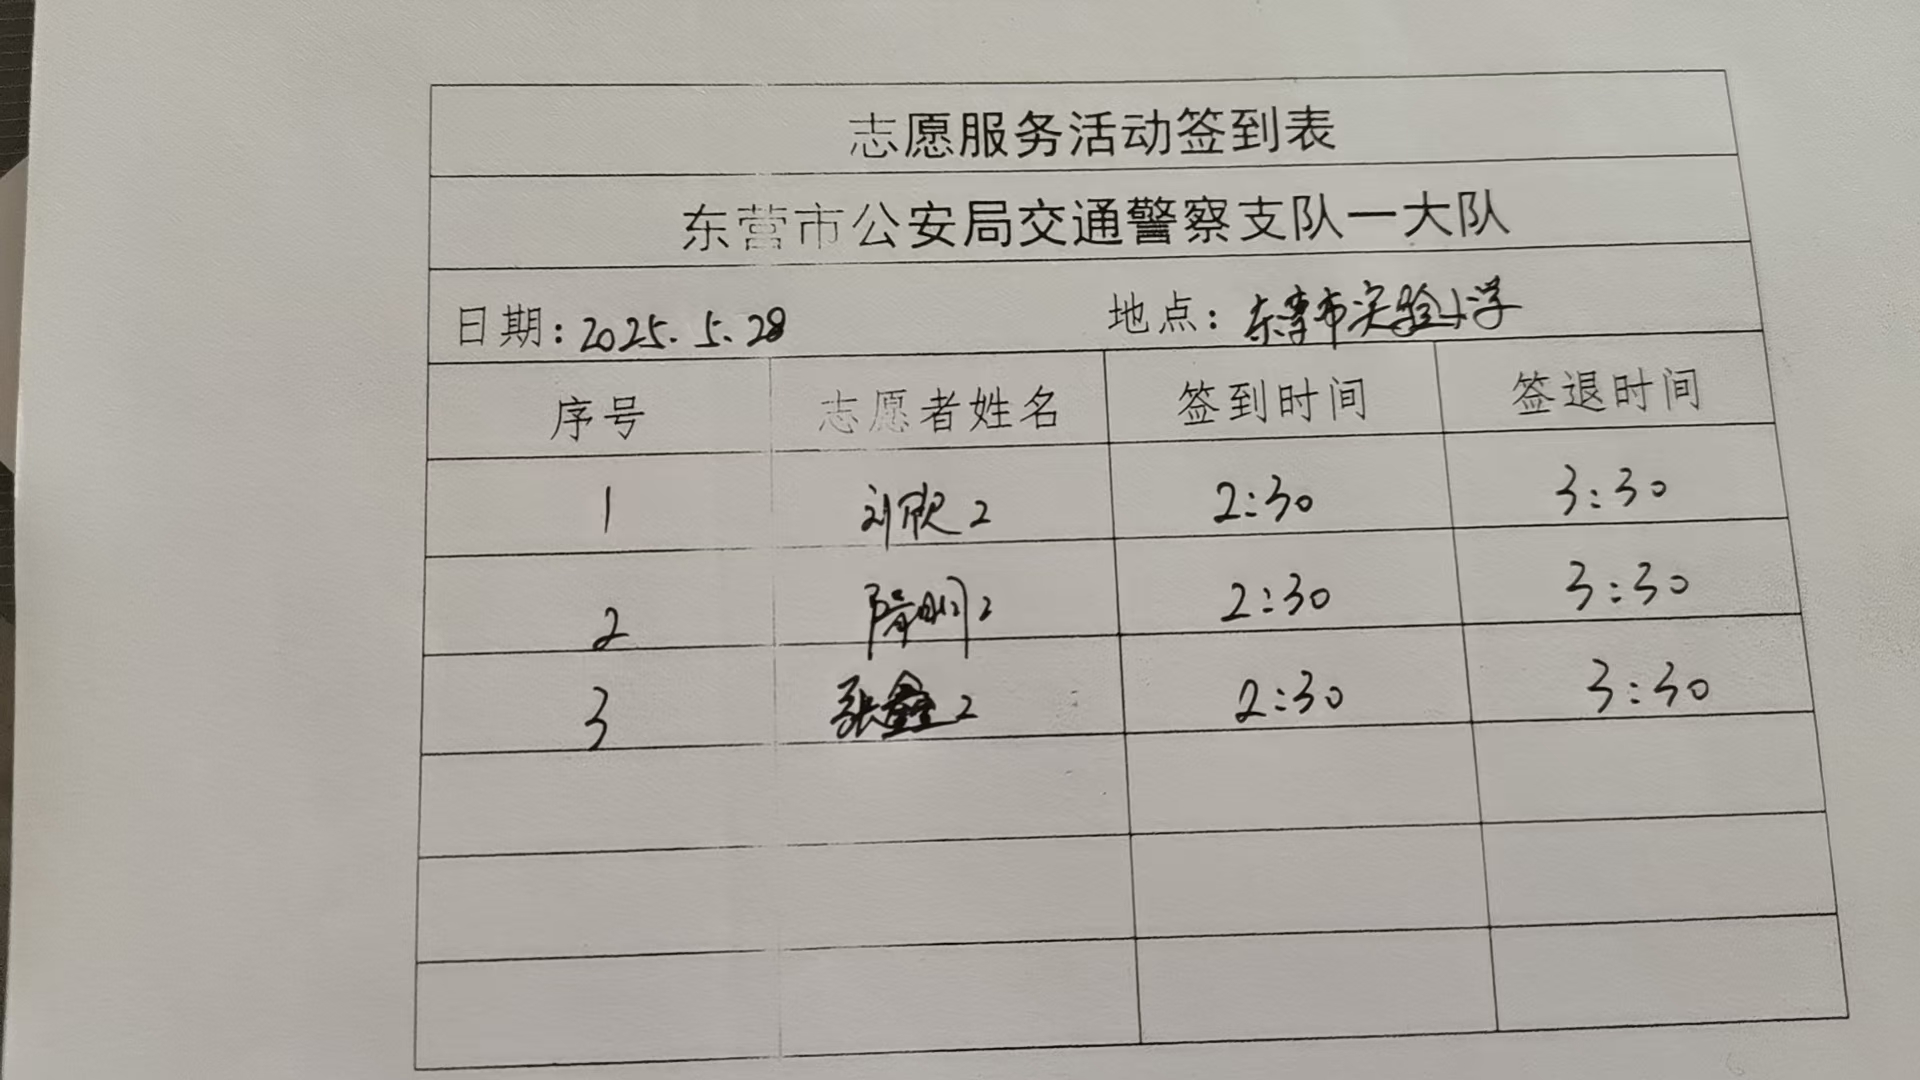 志愿服务活动签到表
东营市公安局交通警察支队一大队
日期：2025.5.28 地点：东营市实验小学
序号 志愿者姓名 签到时间 签退时间
1 刘欣2 2:30 3:30
2 2:30 3:30
3 张鑫2 2:30 3:30